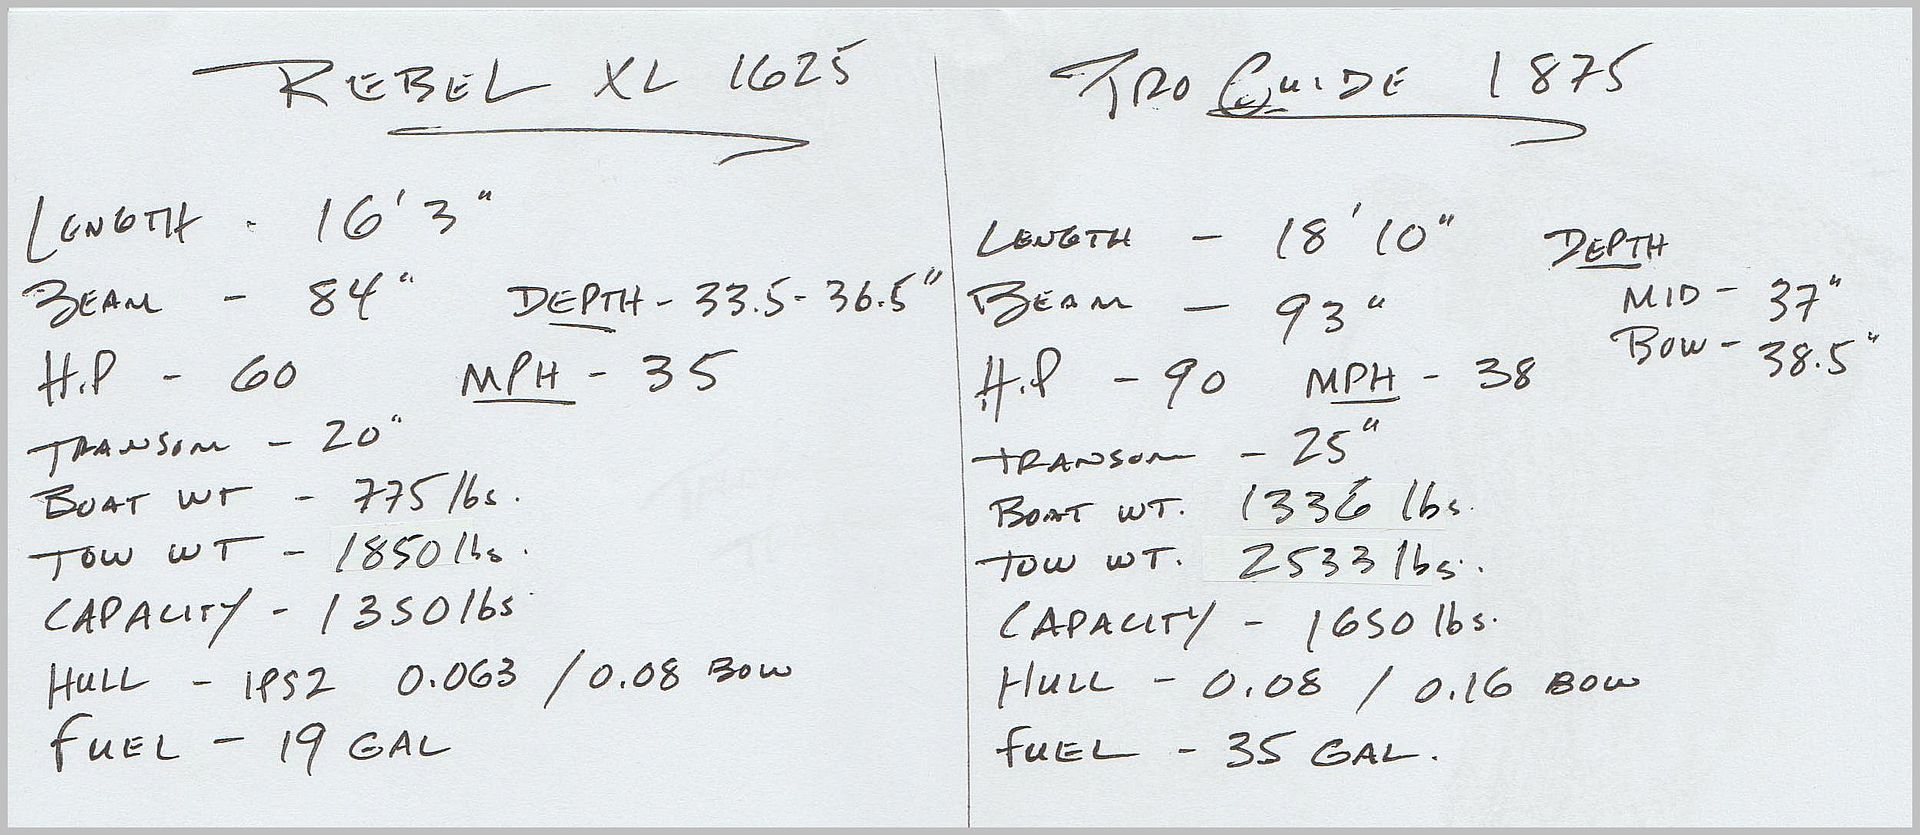 REBEL XL 1625
LENGTH - 16' 3"
BEAM - 84" DEPTH - 33.5 - 36.5"
H.P - 60 MPH - 35
TRANSOM - 20"
BOAT WT - 775 lbs.
TOW WT - 1850 lbs.
CAPACITY - 1350 lbs
HULL - IPS2 0.063 / 0.08 BOW
FUEL - 19 GAL
PRO GUIDE 1875
LENGTH - 18' 10" DEPTH
BEAM - 93" MID - 37"
BOW - 38.5"
H.P - 90 MPH - 38
TRANSOM - 25"
BOAT WT. 1336 lbs.
TOW WT. 2533 lbs.
CAPACITY - 1650 lbs.
HULL - 0.08 / 0.16 BOW
FUEL - 35 GAL.